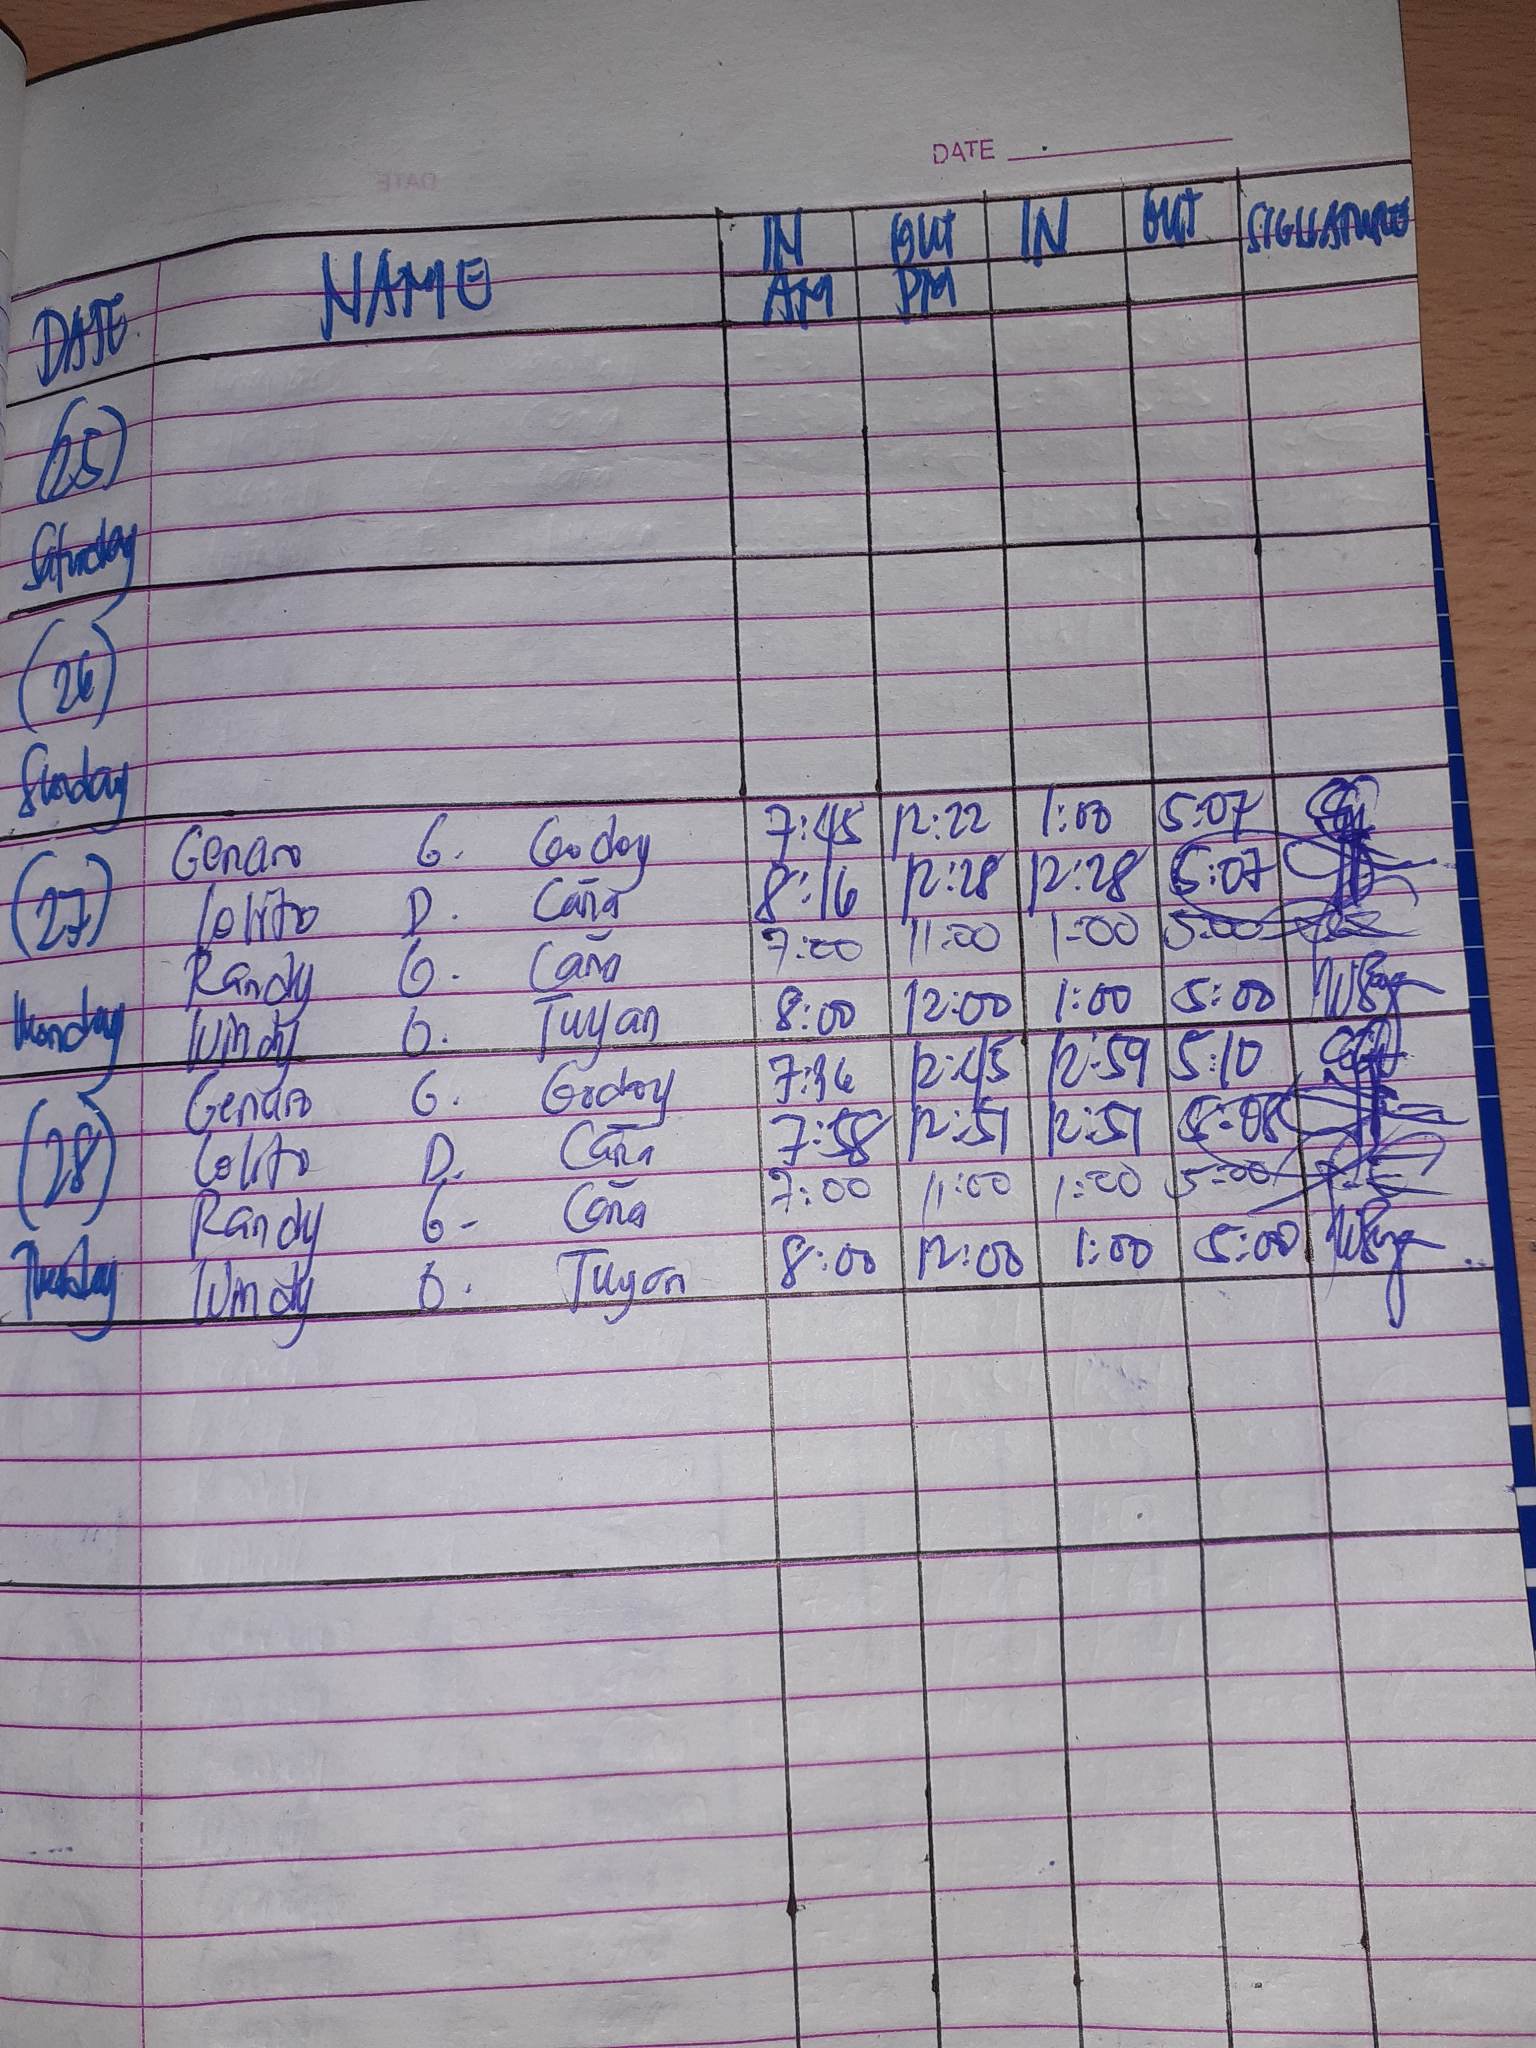 DATE
DATE NAME IN OUT IN OUT SIGNATURE
AM PM
(25)
Saturday
(26)
Sunday
(27)
Monday
Genaro G. Godoy 7:45 12:22 1:00 5:07
Lolito D. Caña 8:16 12:28 12:28 5:07
Randy G. Caña 7:00 11:00 1:00 5:00
Windy O. Tuyan 8:00 12:00 1:00 5:00
(28)
Tuesday
Genaro G. Godoy 7:36 12:45 12:59 5:10
Lolito D. Caña 7:58 12:51 12:51 5:08
Randy G. Caña 7:00 11:00 1:00 5:00
Windy O. Tuyan 8:00 12:00 1:00 5:00